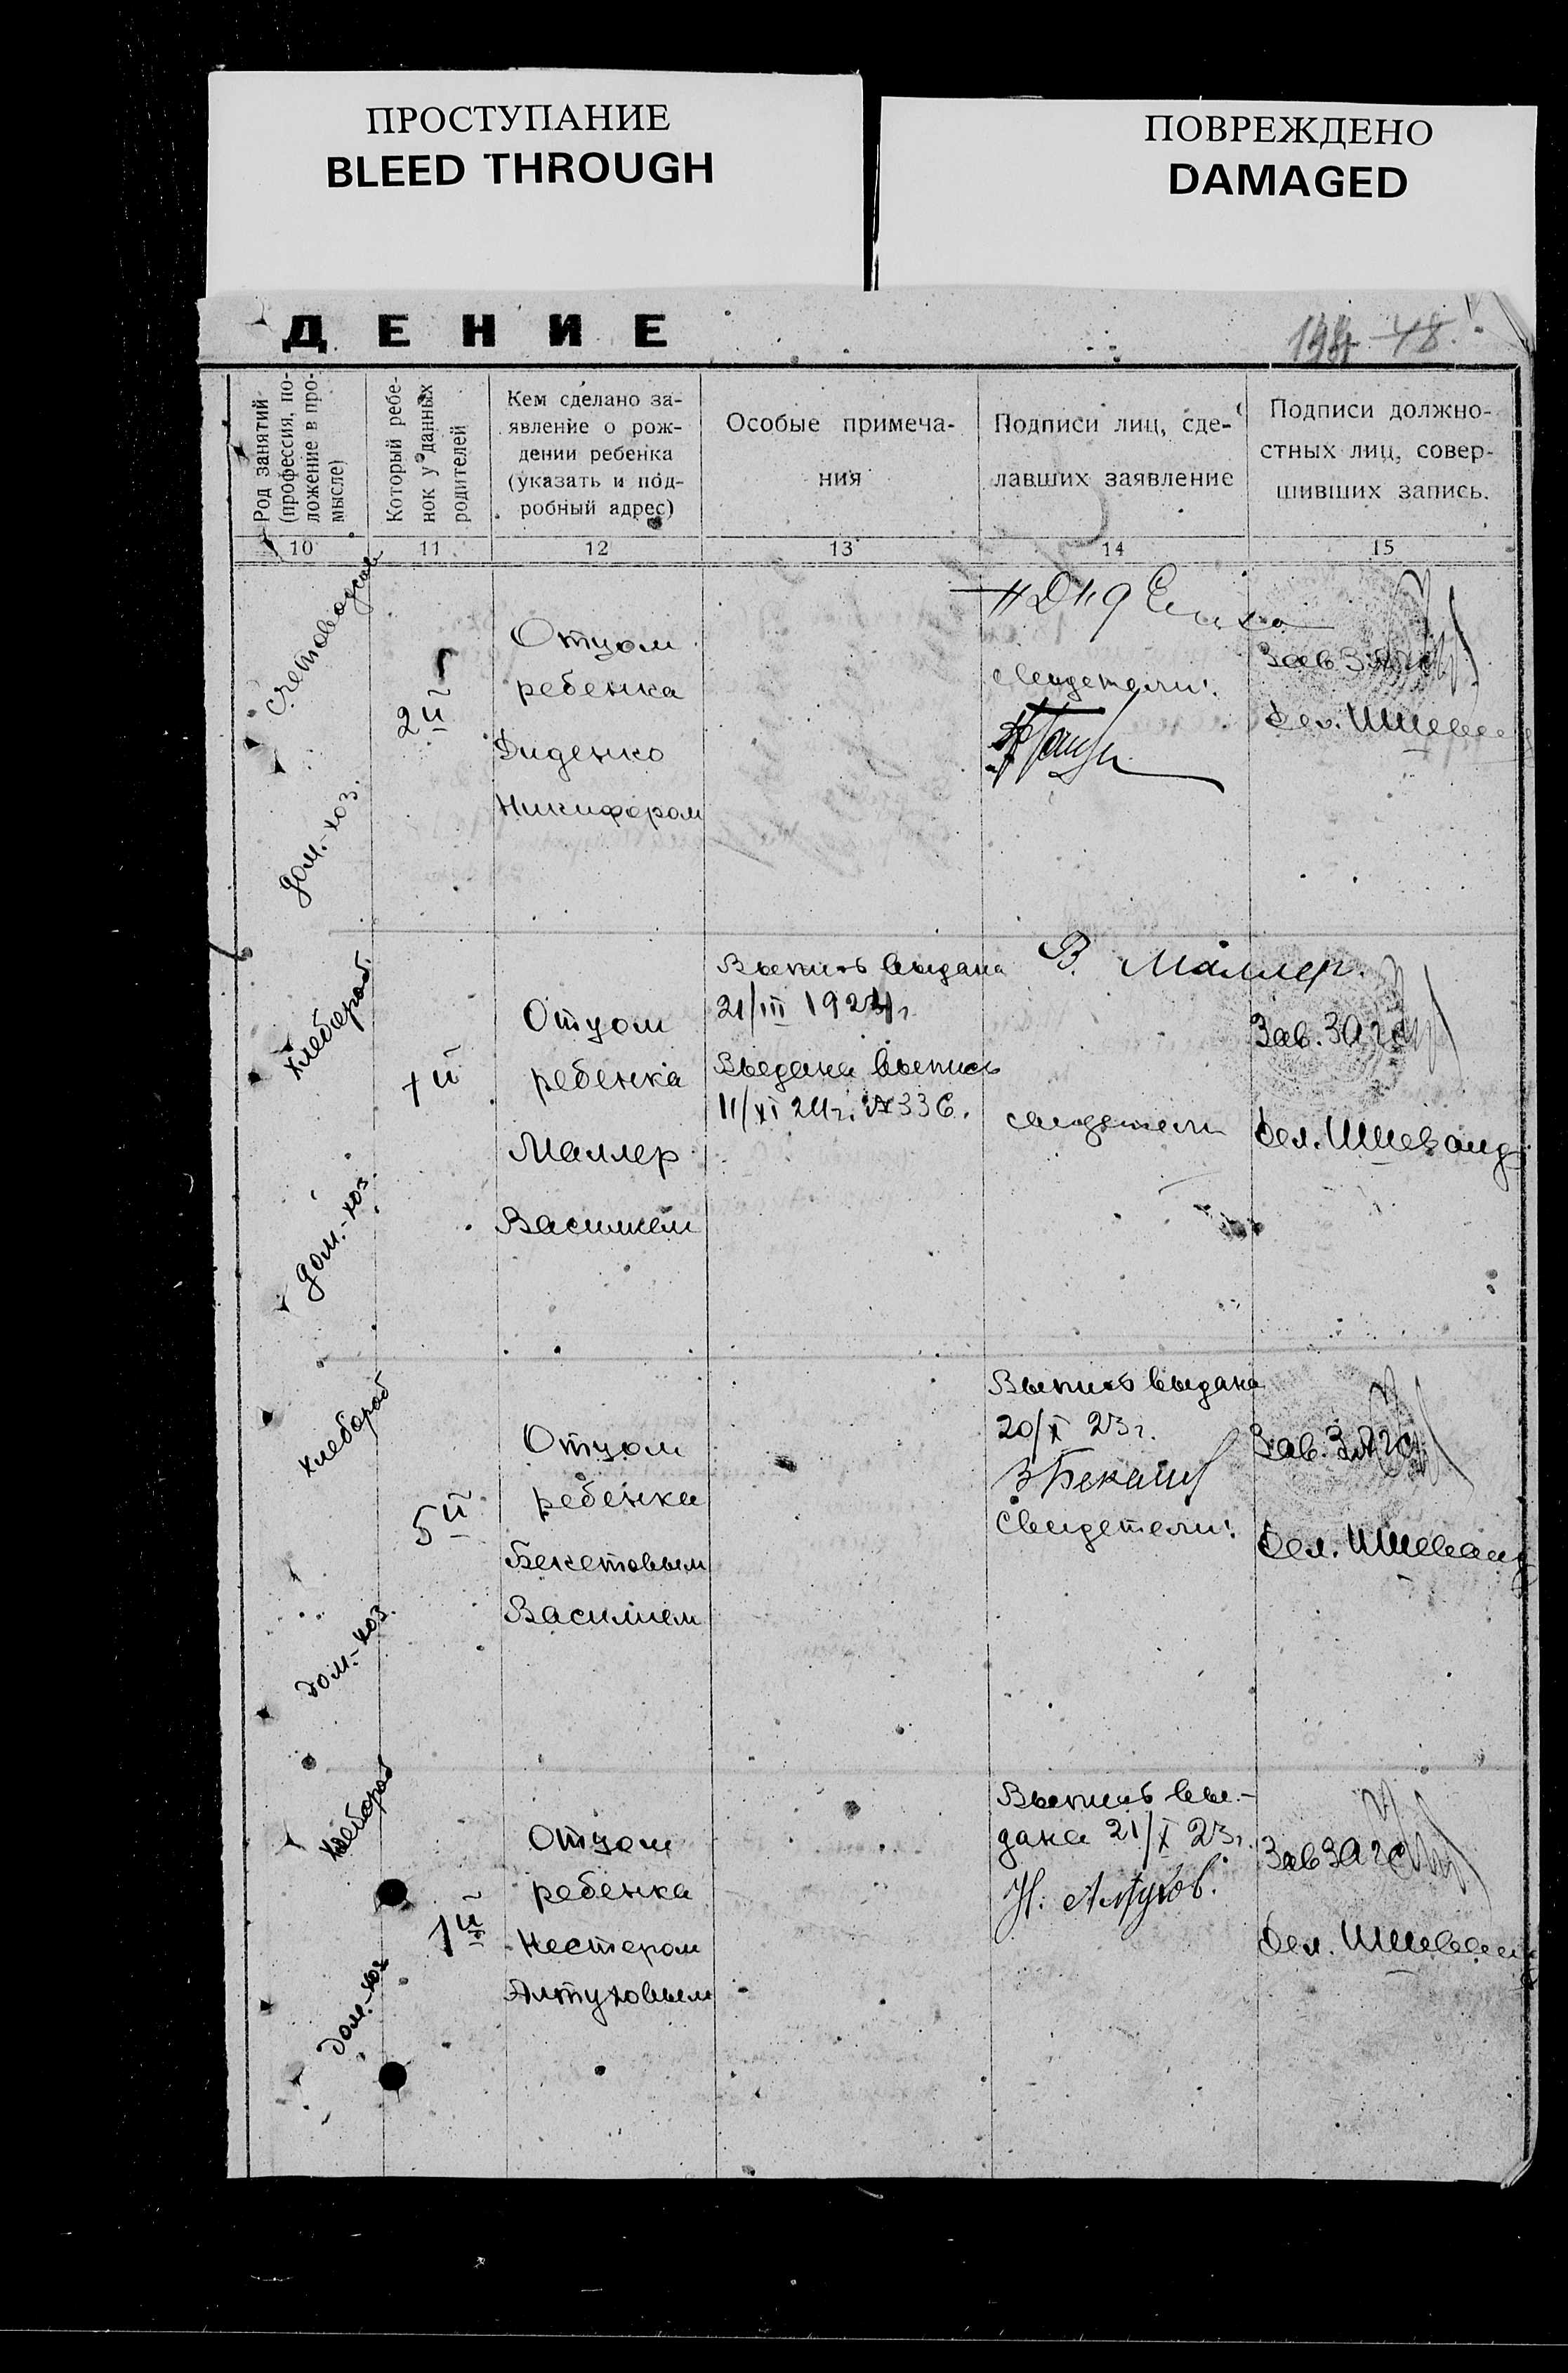 ПРОСТУПАНИЕ
BLEED THROUGH
ПОВРЕЖДЕНО
DAMAGED
ДЕНИЕ
48.
Род занятий
(профессия, по-
ложение в про-
мысле)
Который ребе-
нок у данных
родителей
Кем сделано за-
явление о рож-
дении ребенка
(указать и под-
робный адрес)
Особые примеча-
ния
Подписи лиц, сде-
лавших заявление
Подписи должно-
стных лиц, совер-
шивших запись.
10
11
12
13
14
15
Счетоводсов
дом.-хоз.
2й
Отцом
ребенка
Диденко
Никифором
свидетели:
Зав Загс
Дел.
хлебороб
дом.-хоз.
1й
Отцом
ребенка
Маллер
Василием
Выпись выдана
21/III 1924г.
Выдана выпись
11/XI 24г. № 336.
В. Маллер.
свидетели
Зав. ЗАГС
Дел.
хлебороб
дом.-хоз.
5й
Отцом
ребенка
Бекетовым
Василием
Выпись выдана
20/X 23г.
Свидетели:
Зав. ЗАГС
Дел.
хлебороб
дом.-хоз
1й
Отцом
ребенка
Нестером
Алтуховым
Выпись вы-
дана 21/X 23г.
Н. Алтухов.
Зав ЗАГС
Дел.